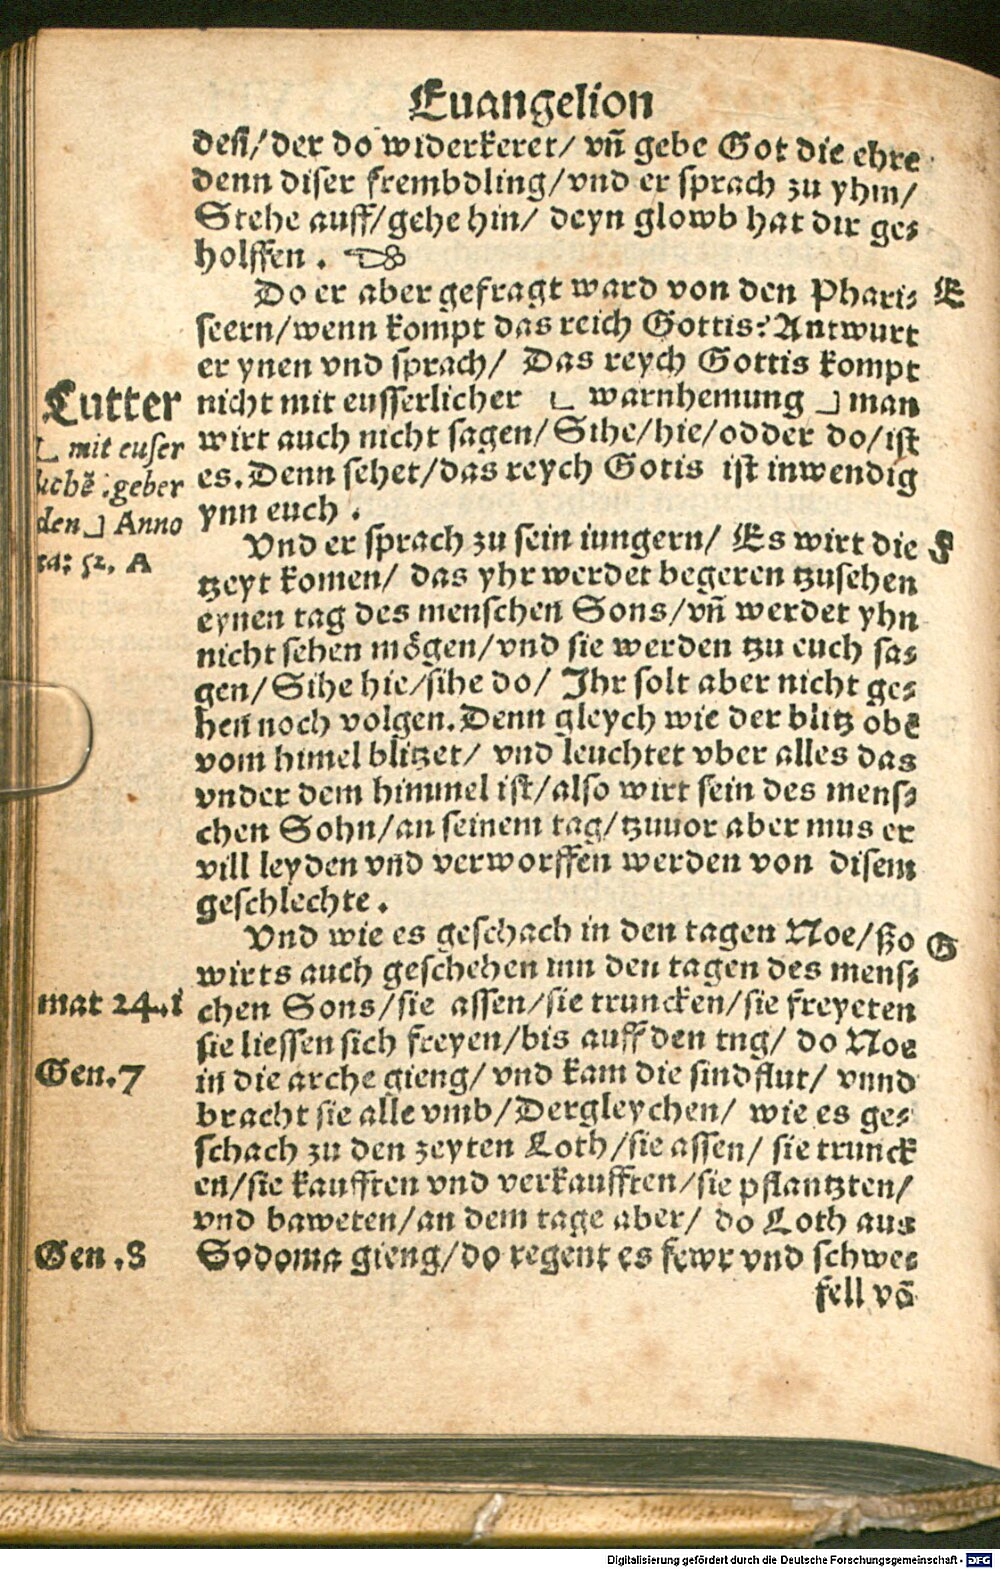 Euangelion
den/ der do widerkeret/ vñ gebe Got die ehre
denn diser frembdling/vnd er sprach zu yhm/
Stehe auff/gehe hin/ deyn glowb hat dir ge⸗
holffen .
Do er aber gefragt ward von den Phari⸗ E
seern/wenn kompt das reich Gottis? Antwurt
er ynen vnd sprach/ Das reych Gottis kompt
Lutter nicht mit eusserlicher ⌞ warnhemung ⌟ man
⌞ mit euser wirt auch nicht sagen/Sihe/hie/odder do/ist
lichẽ .geber es. Denn sehet/das reych Gotis ist inwendig
den ⌟ Anno ynn euch .
ta: 52. A Vnd er sprach zu sein iungern/ Es wirt die F
tzeyt komen/ das yhr werdet begeren tzusehen
eynen tag des menschen Sons/vñ werdet yhn
nicht sehen mögen/vnd sie werden tzu euch sa⸗
gen/Sihe hie/sihe do/ Ihr solt aber nicht ge⸗
hen noch volgen. Denn gleych wie der blitz obẽ
vom himel blitzet/ vnd leuchtet vber alles das
vnder dem himmel ist/also wirt sein des mens⸗
chen Sohn/an seinem tag/tzuuor aber mus er
vill leyden vnd verworffen werden von disem
geschlechte .
Vnd wie es geschach in den tagen Noe/ßo G
wirts auch geschehen inn den tagen des mens⸗
mat 24.f chen Sons/sie assen/sie truncken/sie freyeten
sie liessen sich freyen/bis auff den tng/ do Noe
Gen.7 in die arche gieng/ vnd kam die sindflut/ vnnd
bracht sie alle vmb/Dergleychen/ wie es ge⸗
schach zu den zeyten Loth/sie assen/ sie trunck
en/sie kaufften vnd verkaufften/sie pflantzten/
vnd baweten/an dem tage aber/ do Loth aus
Gen .8 Sodoma gieng/do regent es fewr vnd schwe⸗
fell võ
Digitalisierung gefördert durch die Deutsche Forschungsgemeinschaft - DFG